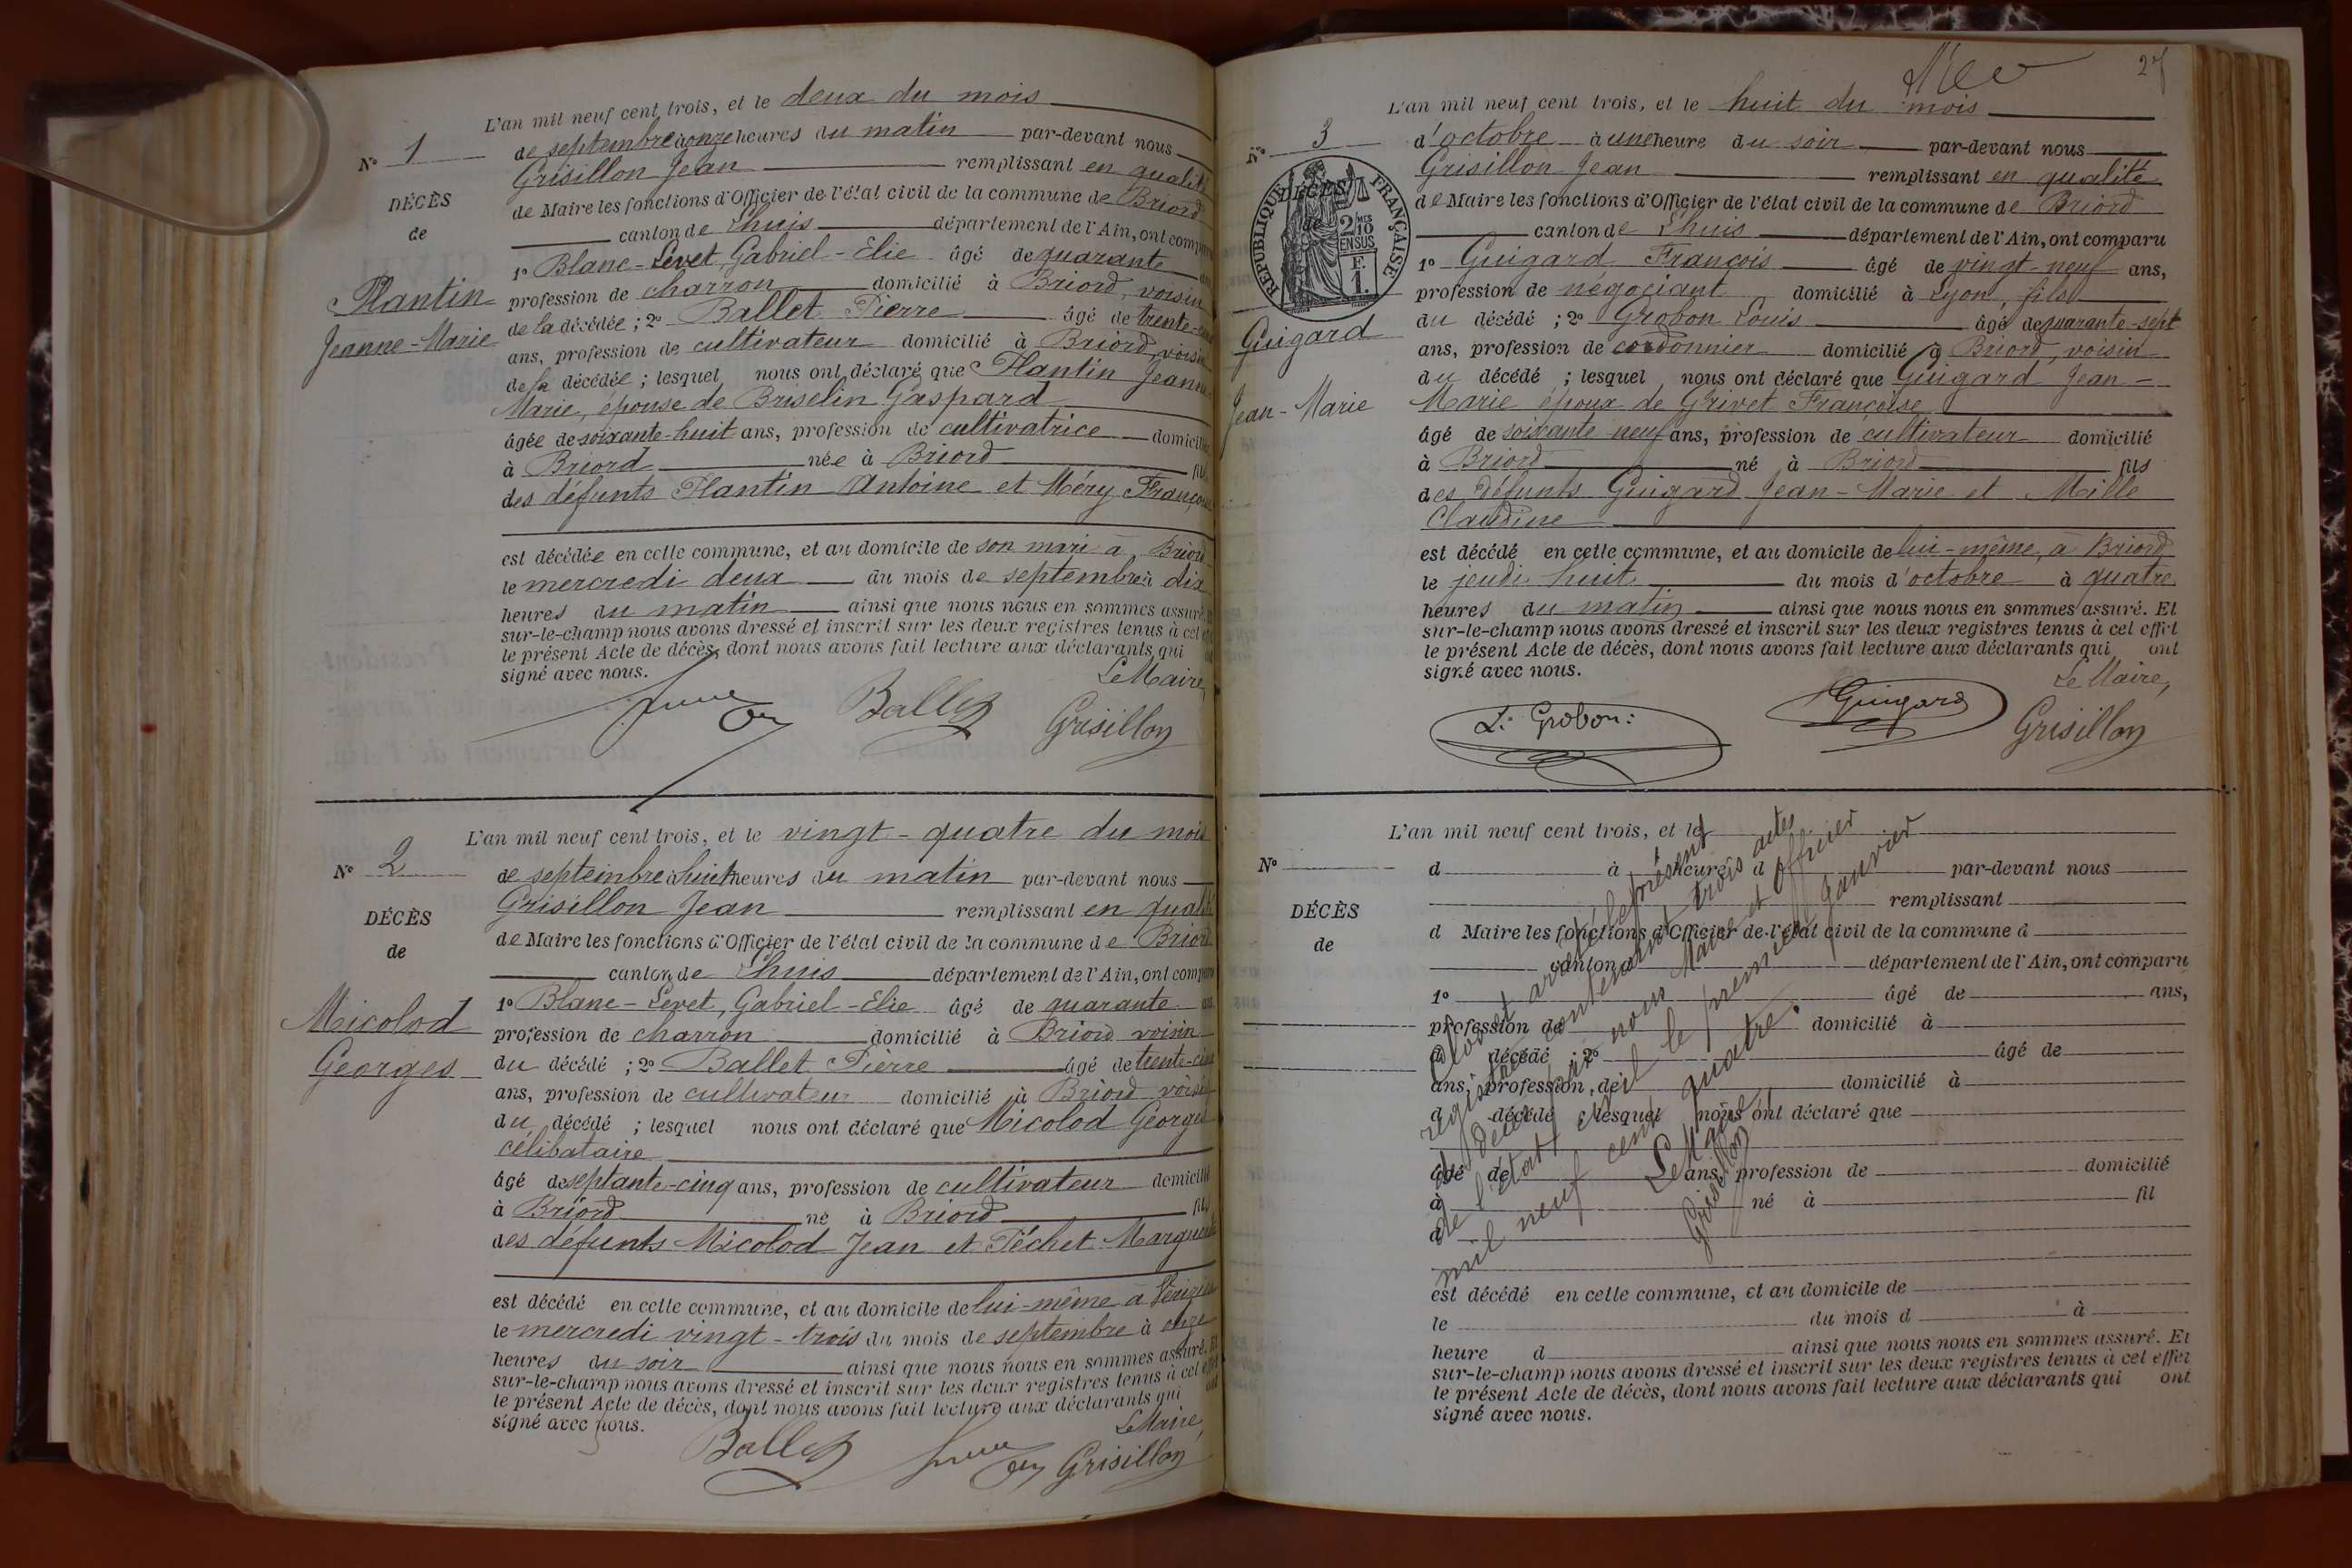 N° 1
DÉCÈS
de
Plantin
Jeanne-Marie
L'an mil neuf cent trois, et le deux du mois
de septembre à onze heures du matin par-devant nous
Grisillon Jean remplissant en qualité
de Maire les fonctions d'Officier de l'état civil de la commune de Briord
canton de Lhuis département de l'Ain, ont comparu
1° Blanc-Levet, Gabriel-Elie âgé de quarante ans
profession de charron domicilié à Briord, voisin
de la décédée ; 2° Ballet Pierre âgé de trente-cinq
ans, profession de cultivateur domicilié à Briord, voisin
de la décédée ; lesquel nous ont déclaré que Plantin Jeanne-
Marie, épouse de Briselin Gaspard
âgée de soixante-huit ans, profession de cultivatrice domicilié
à Briord née à Briord fil
des défunts Plantin Antoine et Méry Françoise
est décédée en cette commune, et au domicile de son mari à Briord
le mercredi deux du mois de septembre à dix
heures du matin ainsi que nous nous en sommes assuré. Et
sur-le-champ nous avons dressé et inscrit sur les deux registres tenus à cet effet
le présent Acte de décès, dont nous avons fait lecture aux déclarants qui ont
signé avec nous.
Le Maire,
Ballet Grisillon
N° 2
DÉCÈS
de
Micolod
Georges
L'an mil neuf cent trois, et le vingt-quatre du mois
de septembre à huit heures du matin par-devant nous
Grisillon Jean remplissant en qualité
de Maire les fonctions d'Officier de l'état civil de la commune de Briord
canton de Lhuis département de l'Ain, ont comparu
1° Blanc-Levet, Gabriel-Elie âgé de quarante ans
profession de charron domicilié à Briord voisin
du décédé ; 2° Ballet Pierre âgé de trente-cinq
ans, profession de cultivateur domicilié à Briord voisin
du décédé ; lesquel nous ont déclaré que Micolod Georges
célibataire
âgé de septante-cinq ans, profession de cultivateur domicilié
à Briord né à Briord fils
des défunts Micolod Jean et Péchet Marguerite
est décédé en cette commune, et au domicile de lui-même à Vérizieu
le mercredi vingt-trois du mois de septembre à onze
heures du soir ainsi que nous nous en sommes assuré. Et
sur-le-champ nous avons dressé et inscrit sur les deux registres tenus à cet effet
le présent Acte de décès, dont nous avons fait lecture aux déclarants qui ont
signé avec nous.
Le Maire,
Ballet Grisillon
27
N° 3
DÉCÈS
de
RÉPUBLIQUE FRANÇAISE
2/10 EN SUS
F. 1.
Guigard
Jean-Marie
L'an mil neuf cent trois, et le huit du mois
d'octobre à une heure du soir par-devant nous
Grisillon Jean remplissant en qualité
de Maire les fonctions d'Officier de l'état civil de la commune de Briord
canton de Lhuis département de l'Ain, ont comparu
1° Guigard François âgé de vingt-neuf ans,
profession de négociant domicilié à Lyon, fils
du décédé ; 2° Grobon Louis âgé de quarante-sept
ans, profession de cordonnier domicilié à Briord, voisin
du décédé ; lesquel nous ont déclaré que Guigard Jean-
Marie époux de Grivet Françoise
âgé de soixante neuf ans, profession de cultivateur domicilié
à Briord né à Briord fils
des défunts Guigard Jean-Marie et Mille
Claudine
est décédé en cette commune, et au domicile de lui-même, à Briord
le jeudi huit du mois d'octobre à quatre
heures du matin ainsi que nous nous en sommes assuré. Et
sur-le-champ nous avons dressé et inscrit sur les deux registres tenus à cet effet
le présent Acte de décès, dont nous avons fait lecture aux déclarants qui ont
signé avec nous.
Le Maire,
L. Grobon Guigard Grisillon
N°
DÉCÈS
de
L'an mil neuf cent trois, et le
d à heure d par-devant nous
remplissant
d Maire les fonctions d'Officier de l'état civil de la commune d
canton d département de l'Ain, ont comparu
1° âgé de ans,
profession de domicilié à
d décédé ; 2° âgé de
ans, profession de domicilié à
d décédé ; lesquel nous ont déclaré que
âgé de ans, profession de domicilié
à né à fil
d
est décédé en cette commune, et au domicile de
le du mois d à
heure d ainsi que nous nous en sommes assuré. Et
sur-le-champ nous avons dressé et inscrit sur les deux registres tenus à cet effet
le présent Acte de décès, dont nous avons fait lecture aux déclarants qui ont
signé avec nous.
Clos et arrêté le présent
registre contenant trois actes
de décès par nous Maire et officier
de l'état civil le premier janvier
mil neuf cent quatre.
Le Maire,
Grisillon